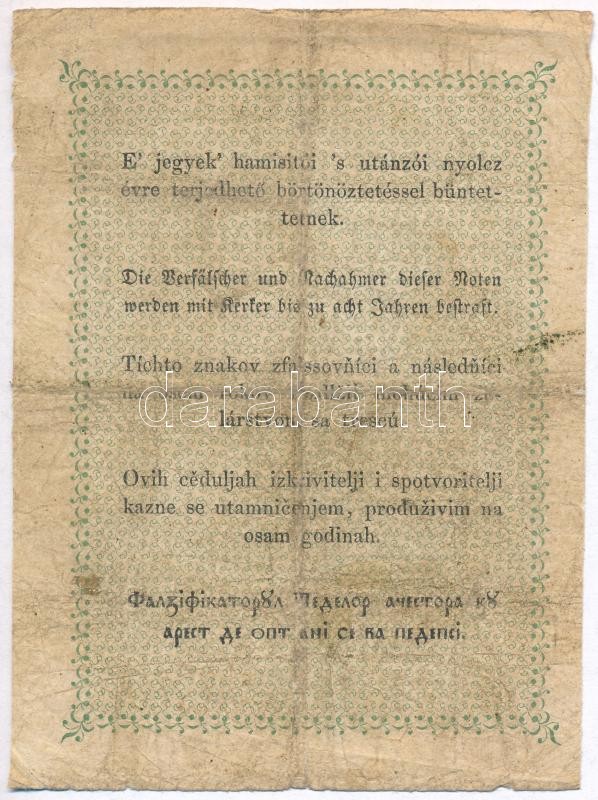 E' jegyek' hamisitói 's utánzói nyolcz
évre terjedhető börtönöztetéssel büntet-
tetnek.
Die Verfälscher und Nachahmer dieser Noten
werden mit Kerker bis zu acht Jahren bestraft.
Tíchto znakov zfalssovňíci a následňíci
na osem rokov
lárstvom sa trescú
Ovih cěduljah izkrivitelji i spotvoritelji
kazne se utamničenjem, produživim na
osam godinah.
Фалꙁіфікаторꙋл Чеделор ачестора кꙋ
арест де опт ані се ва педепсі.
darabanth